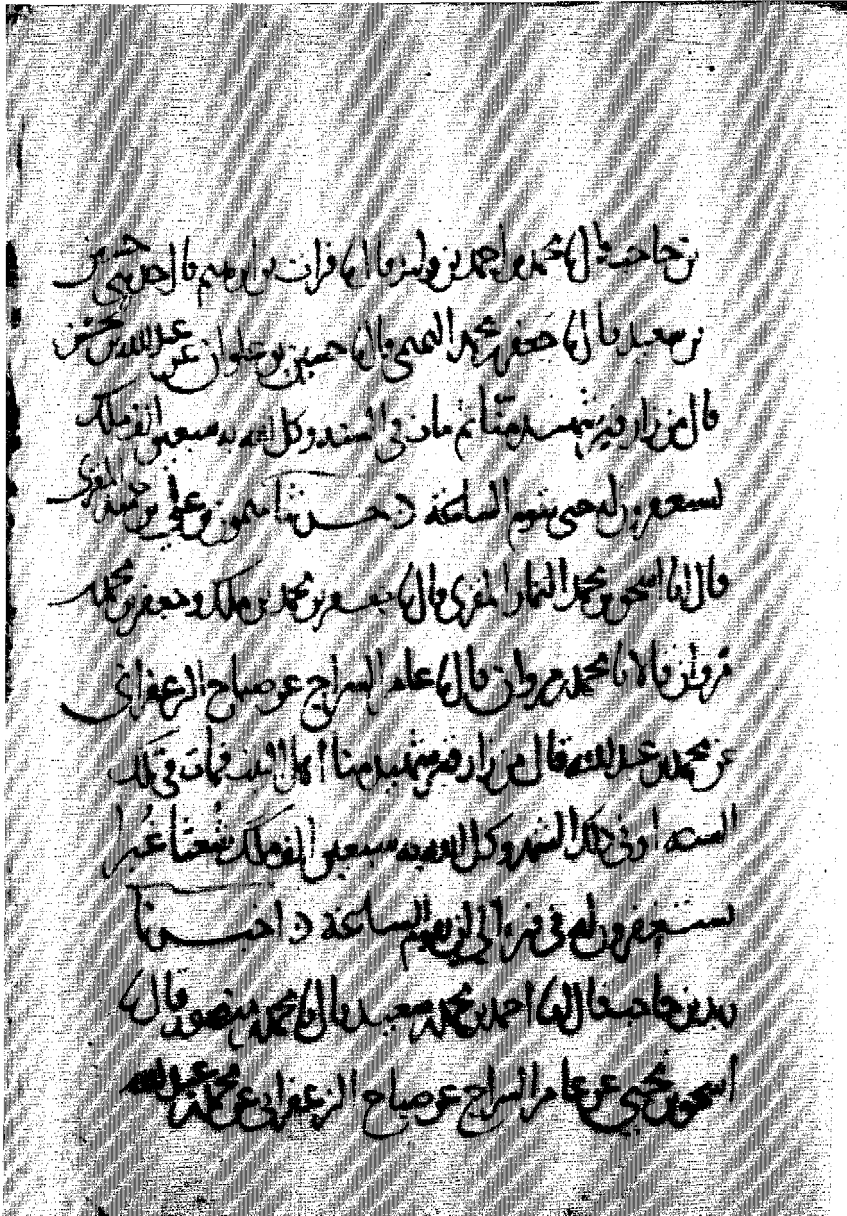 بن حاجب قال نا محمد بن احمد بن وليد قال نا فرات بن ابرهيم قال حدثني حسين
بن سعيد قال نا جعفر بن محمد قال نا حسين بن علوان عن عبد الله بن
قال من زار قبر شهيد منا ثم مات في السنة وكل الله به سبعين الف ملك
يستغفرون له حتى تقوم الساعة حدثنا ميمون بن علي بن حميد المقري
قال انا اسحق بن محمد التمار المقري قال نا جعفر بن محمد بن ملك وجعفر بن محمد
مروان قالا نا محمد بن مروان قال نا عامر السراج عن صباح الزعفراني
عن محمد بن عبد الله قال من زار قبر شهيد منا اهل البيت فمات في تلك
السنة او في ذلك الشهر وكل الله به سبعين الف ملك شعثا غبرا
يستغفرون له في قبره الى ان تقوم الساعة اخبرنا
زيد بن حاجب قال نا احمد بن محمد بن سعيد قال نا محمد بن منصور قال نا
اسحق بن يحيى عن عامر السراج عن صباح الزعفراني عن محمد بن عبد الله